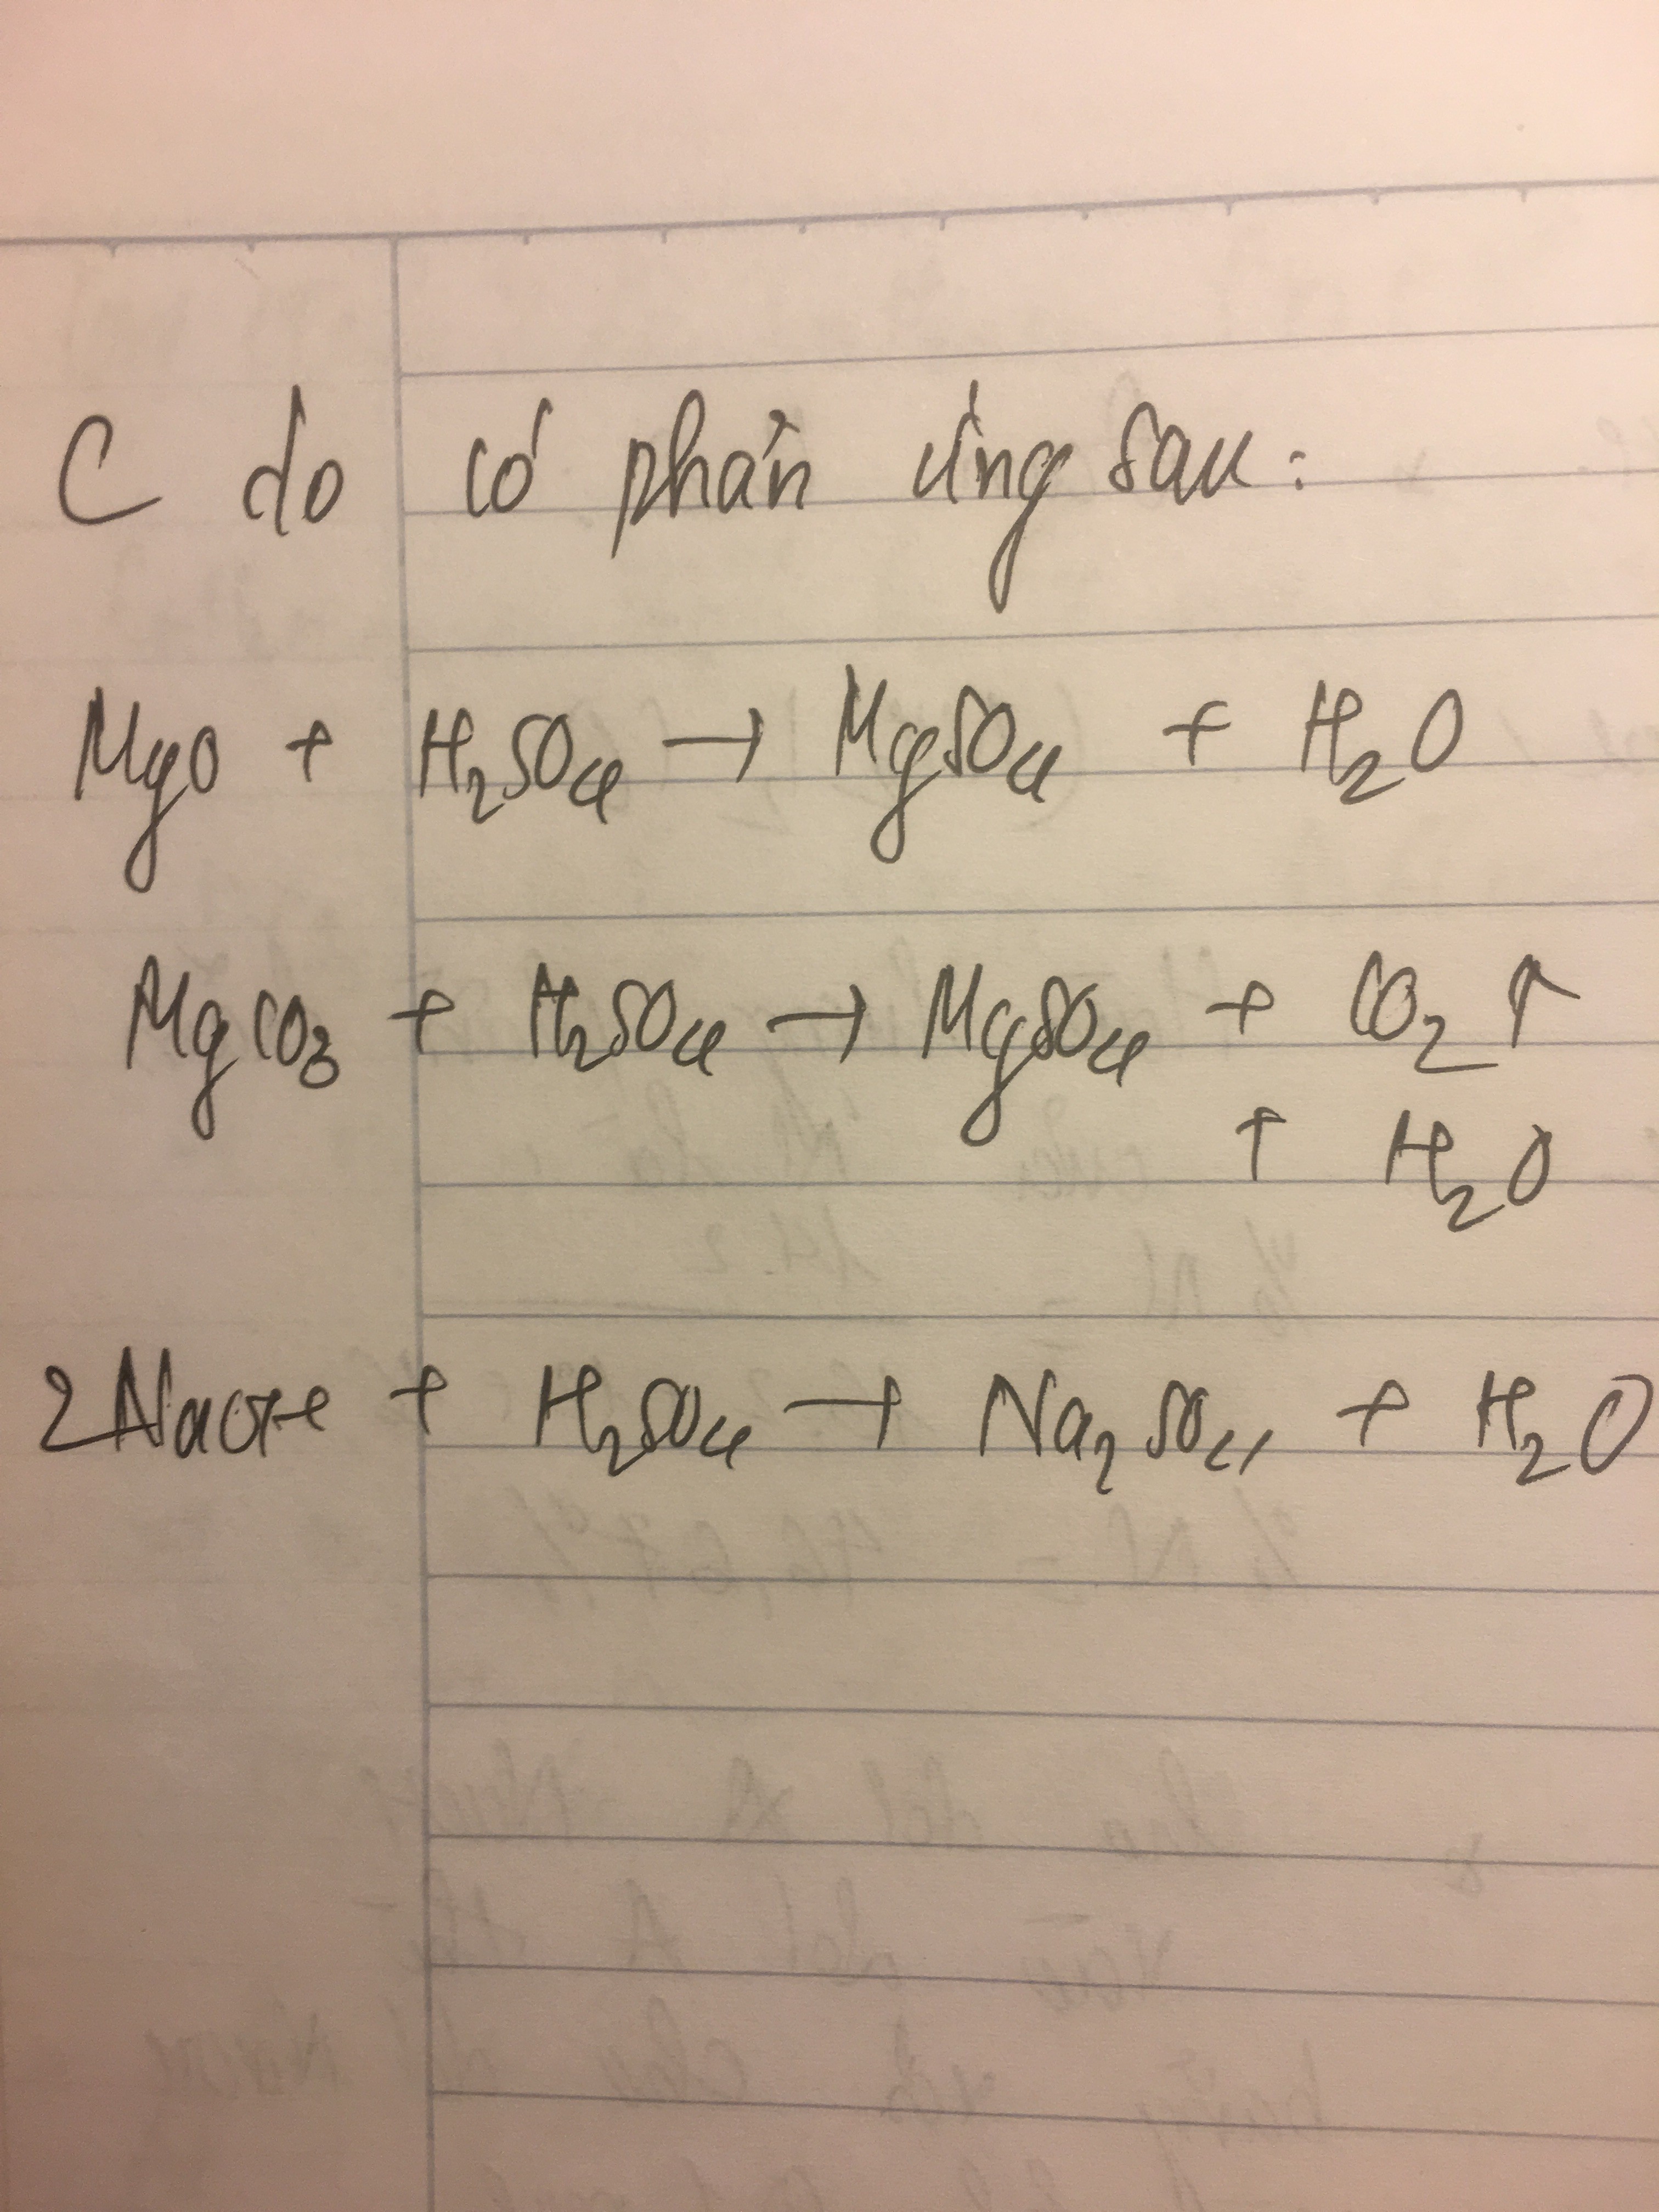 C do có phản ứng sau:
MgO + H₂SO₄ → MgSO₄ + H₂O
MgCO₃ + H₂SO₄ → MgSO₄ + CO₂ ↑
+ H₂O
2NaOH + H₂SO₄ → Na₂SO₄ + H₂O